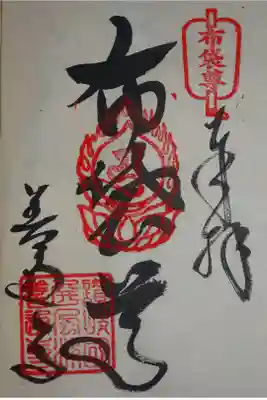 布袋尊
奉拝
布袋尊
善通寺